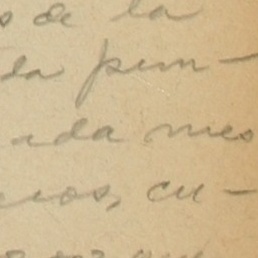 s de la
da pun-
ada mes
cios, cu-